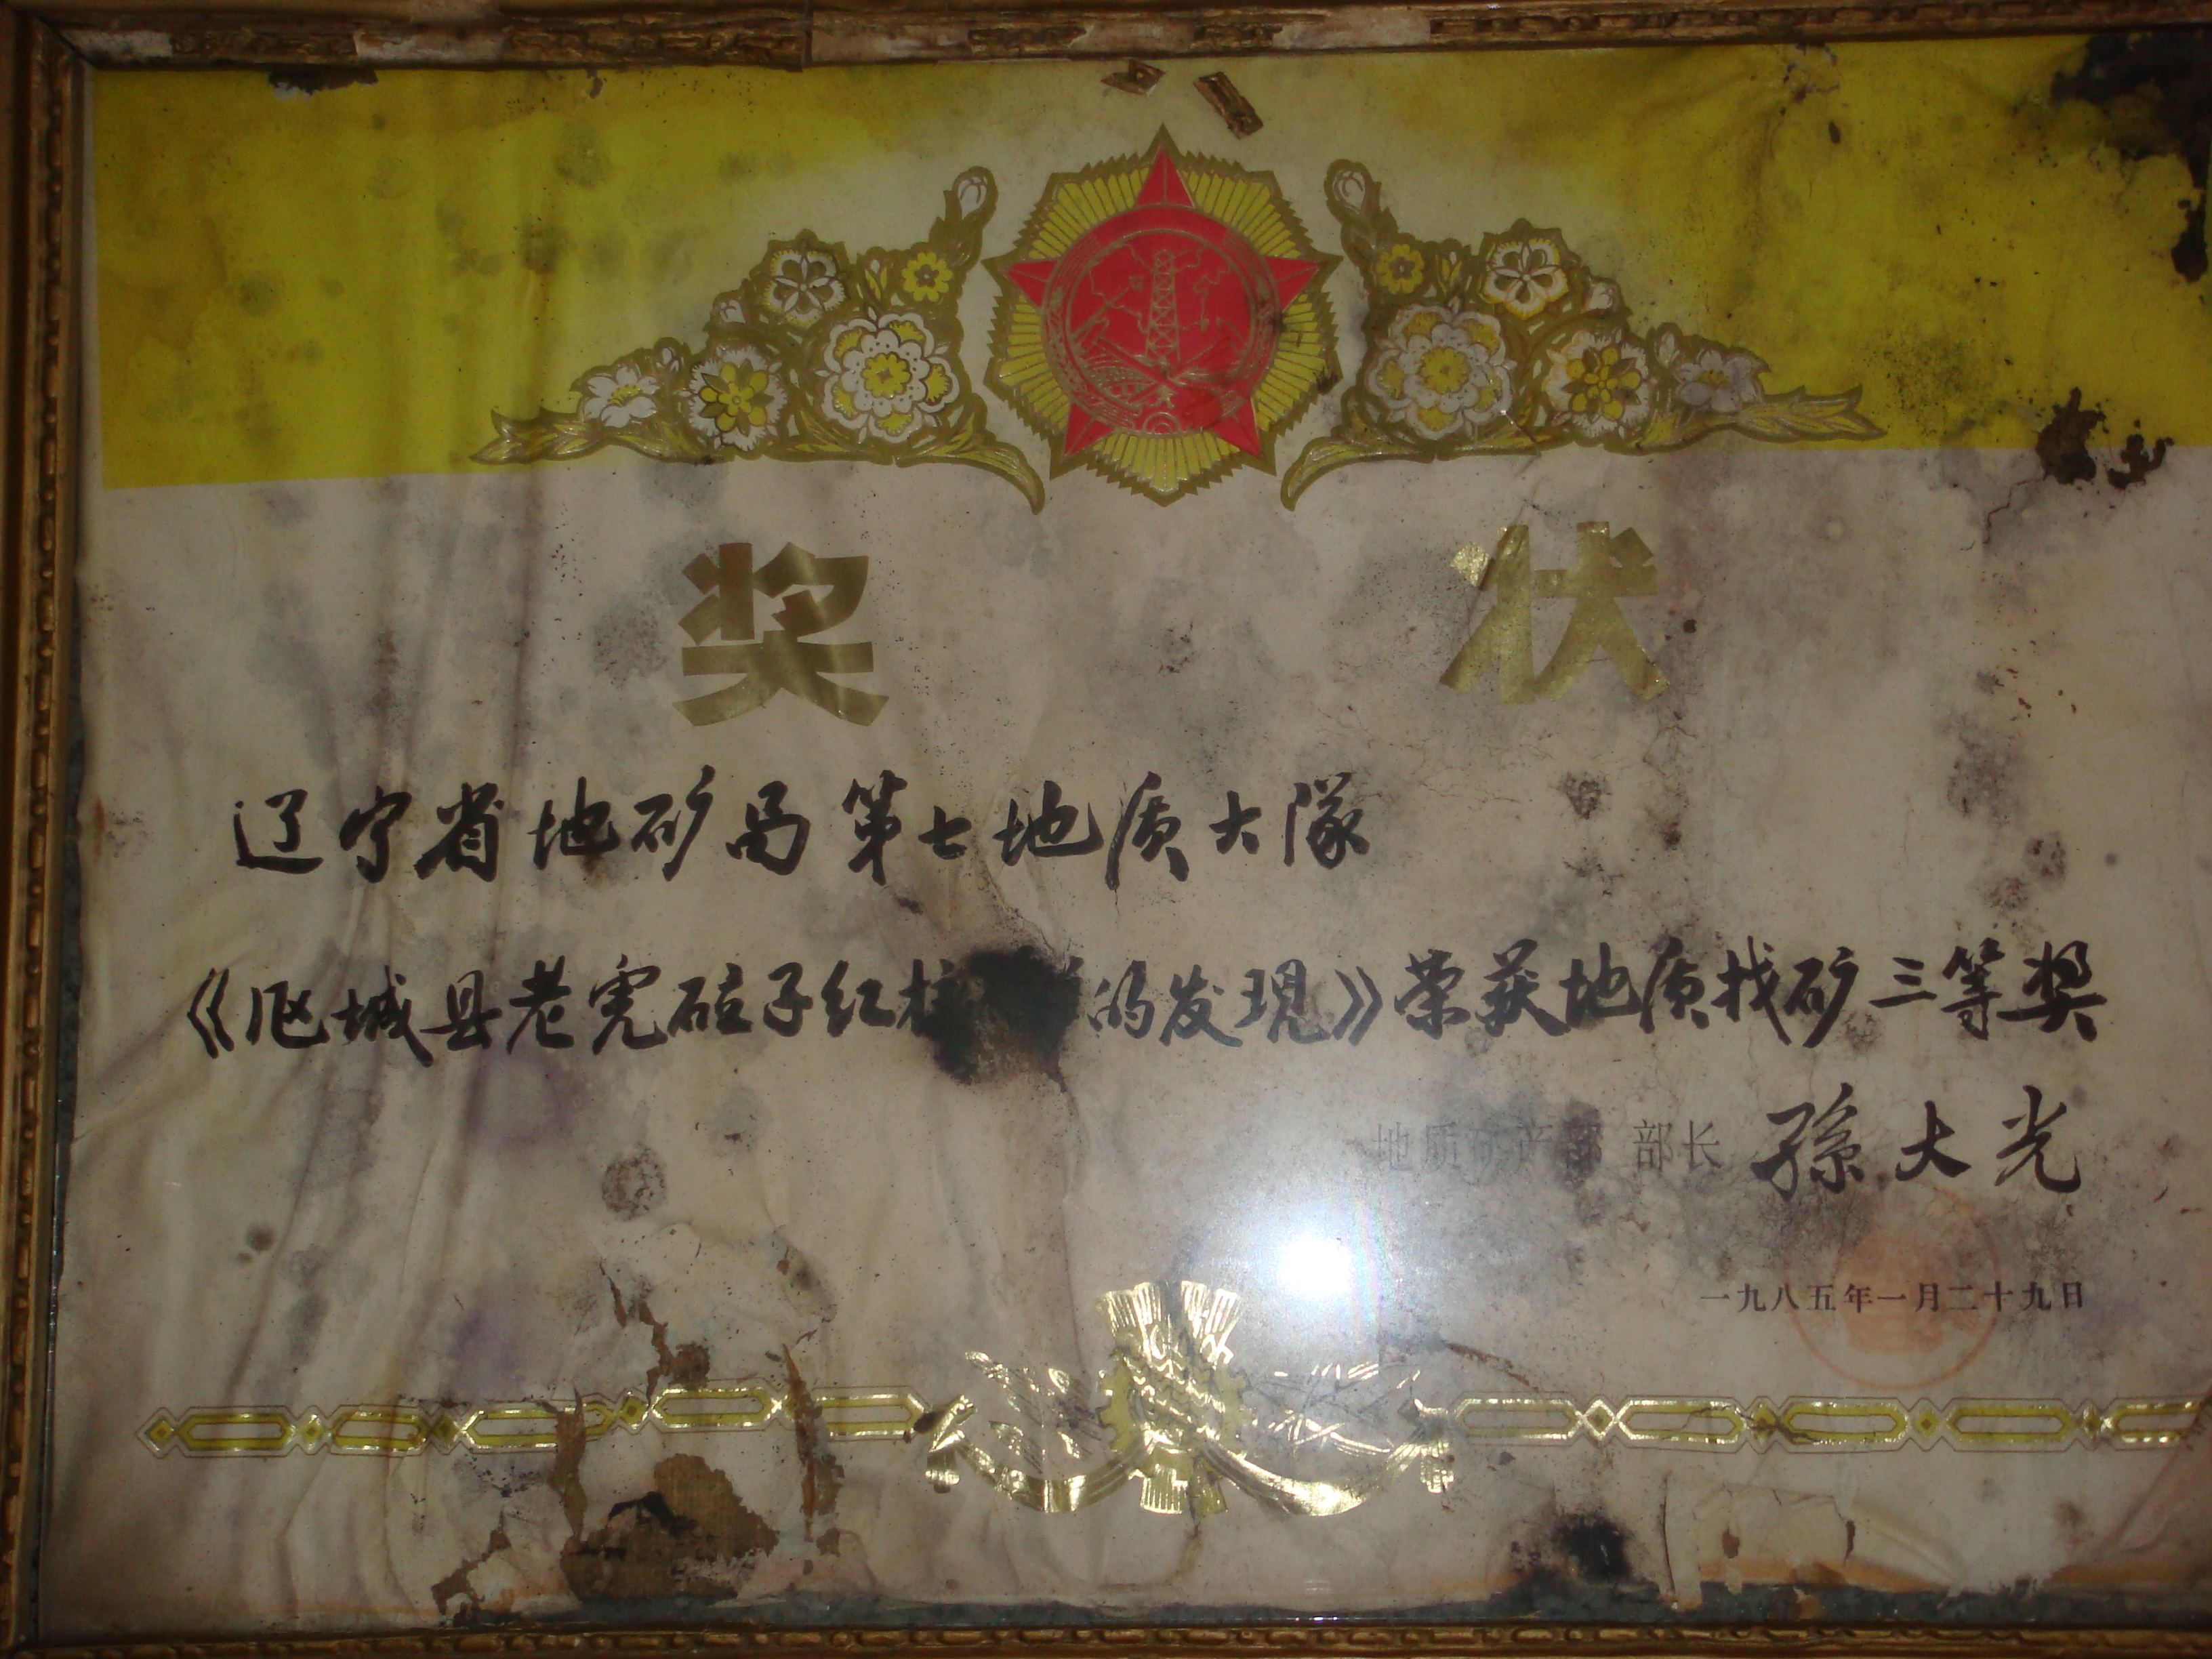 奖状
辽宁省地矿局第七地质大隊
《凤城县老虎砬子红柱 的发現》荣获地质找矿三等奖
地质矿产部 部长 孫大光
一九八五年一月二十九日